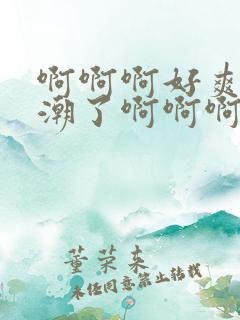 啊啊啊好爽
潮了啊啊啊
董荣来
未经同意禁止转载